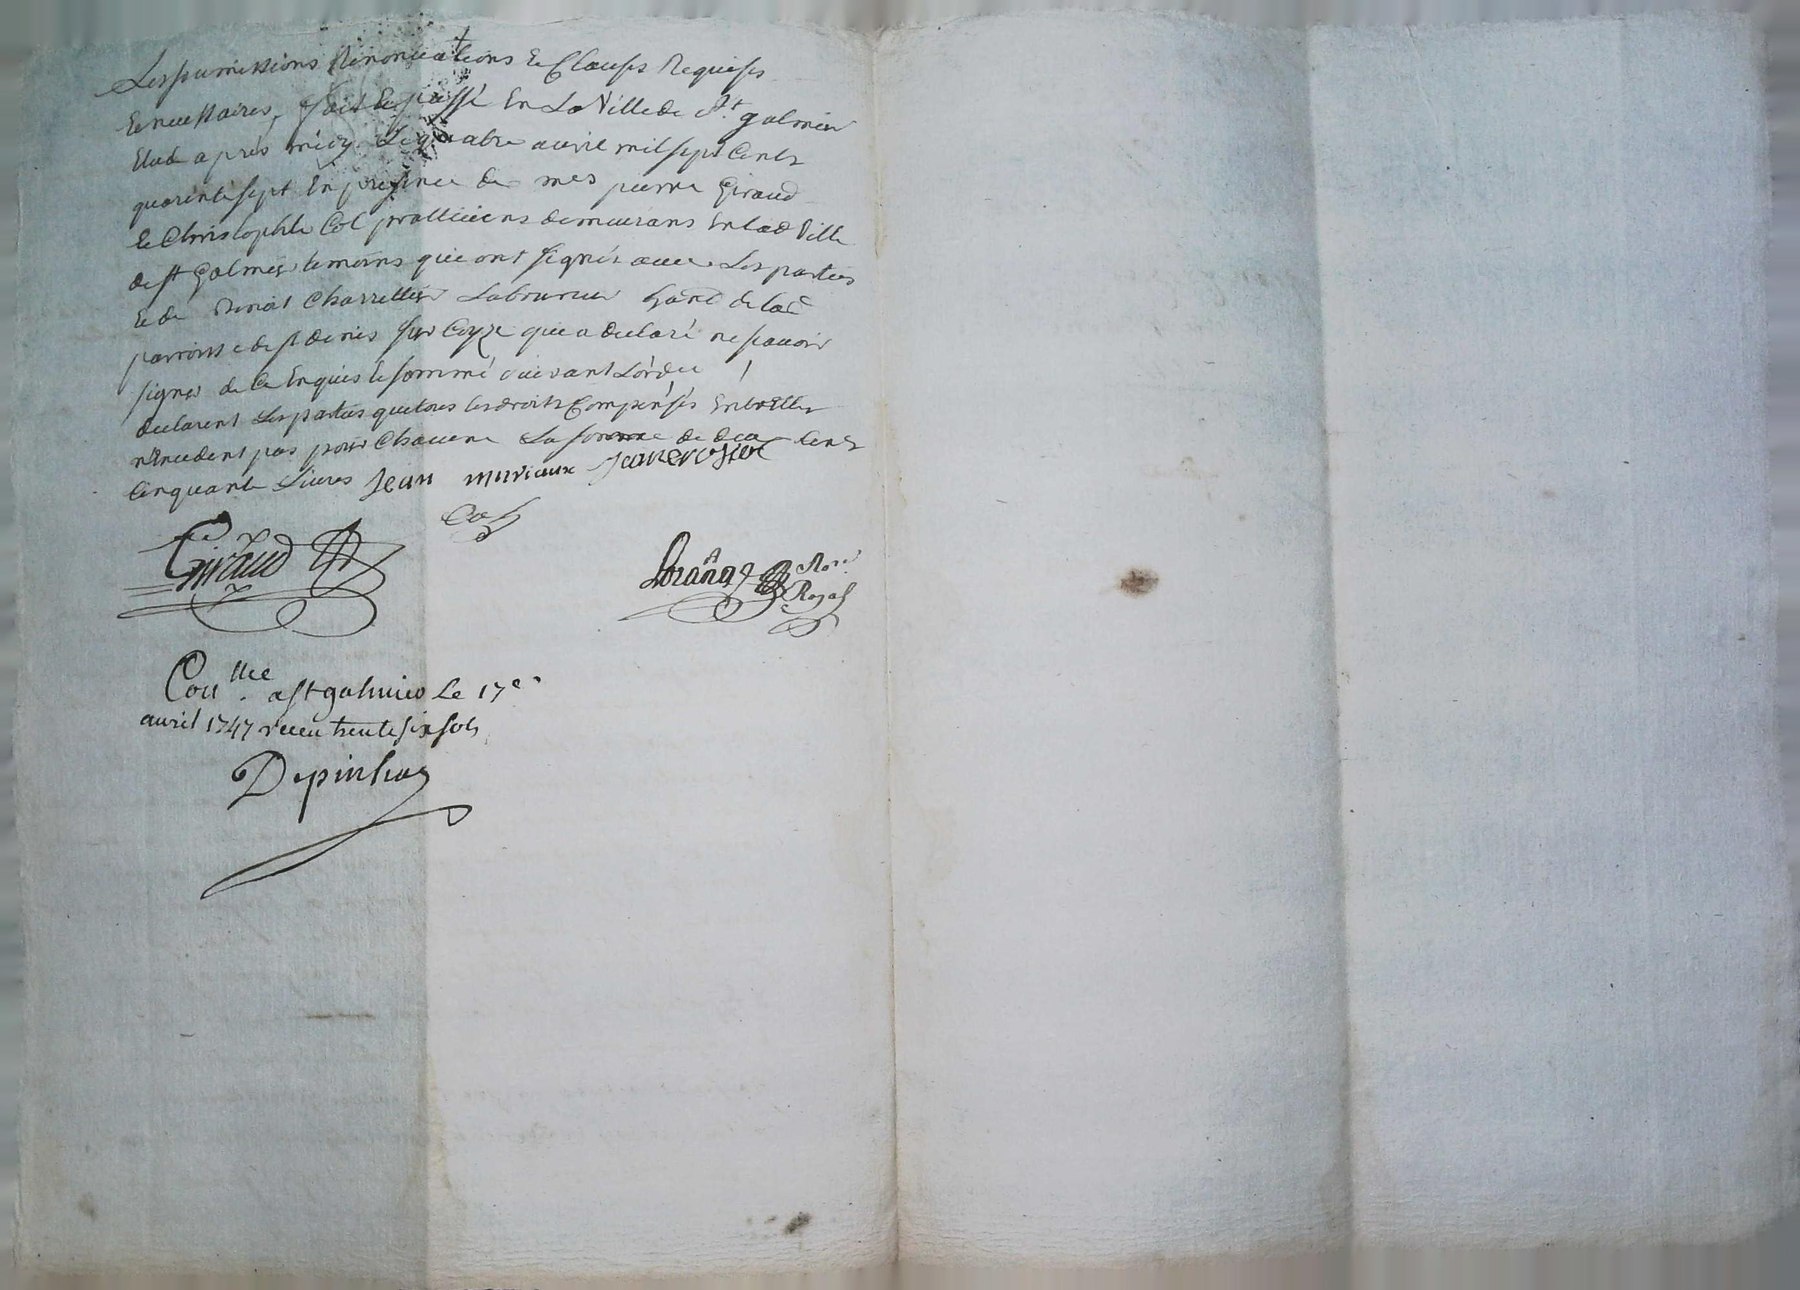 Les soumissions Renonciations Et Clauses Requises
Et necessaires, fait Et passé En La Ville de St. galmier
Etude apres midy Le quatre avril mil sept Cents
quarente sept En presence de mes pierre Giraud
Et Christophle Col pratticiens demeurans En lad Ville
de st Galmier temoins qui ont signés avec Les parties
Et de Benoit Charrettier Laboureur de lad
parroisse de st denis sur Coyze qui a declaré ne scavoir
signer de Ce Enquis Et sommé suivant L'ord
declarent Les parties que tous les droits Compensés Entr'Elles
n'Excedent pas pour Chacune La somme de deux Cents
Cinquante Livres Jean
Col
Giraud
Nore
Royal
Coulleé a st galmier Le 17e
avril 1747 receu trente six sols